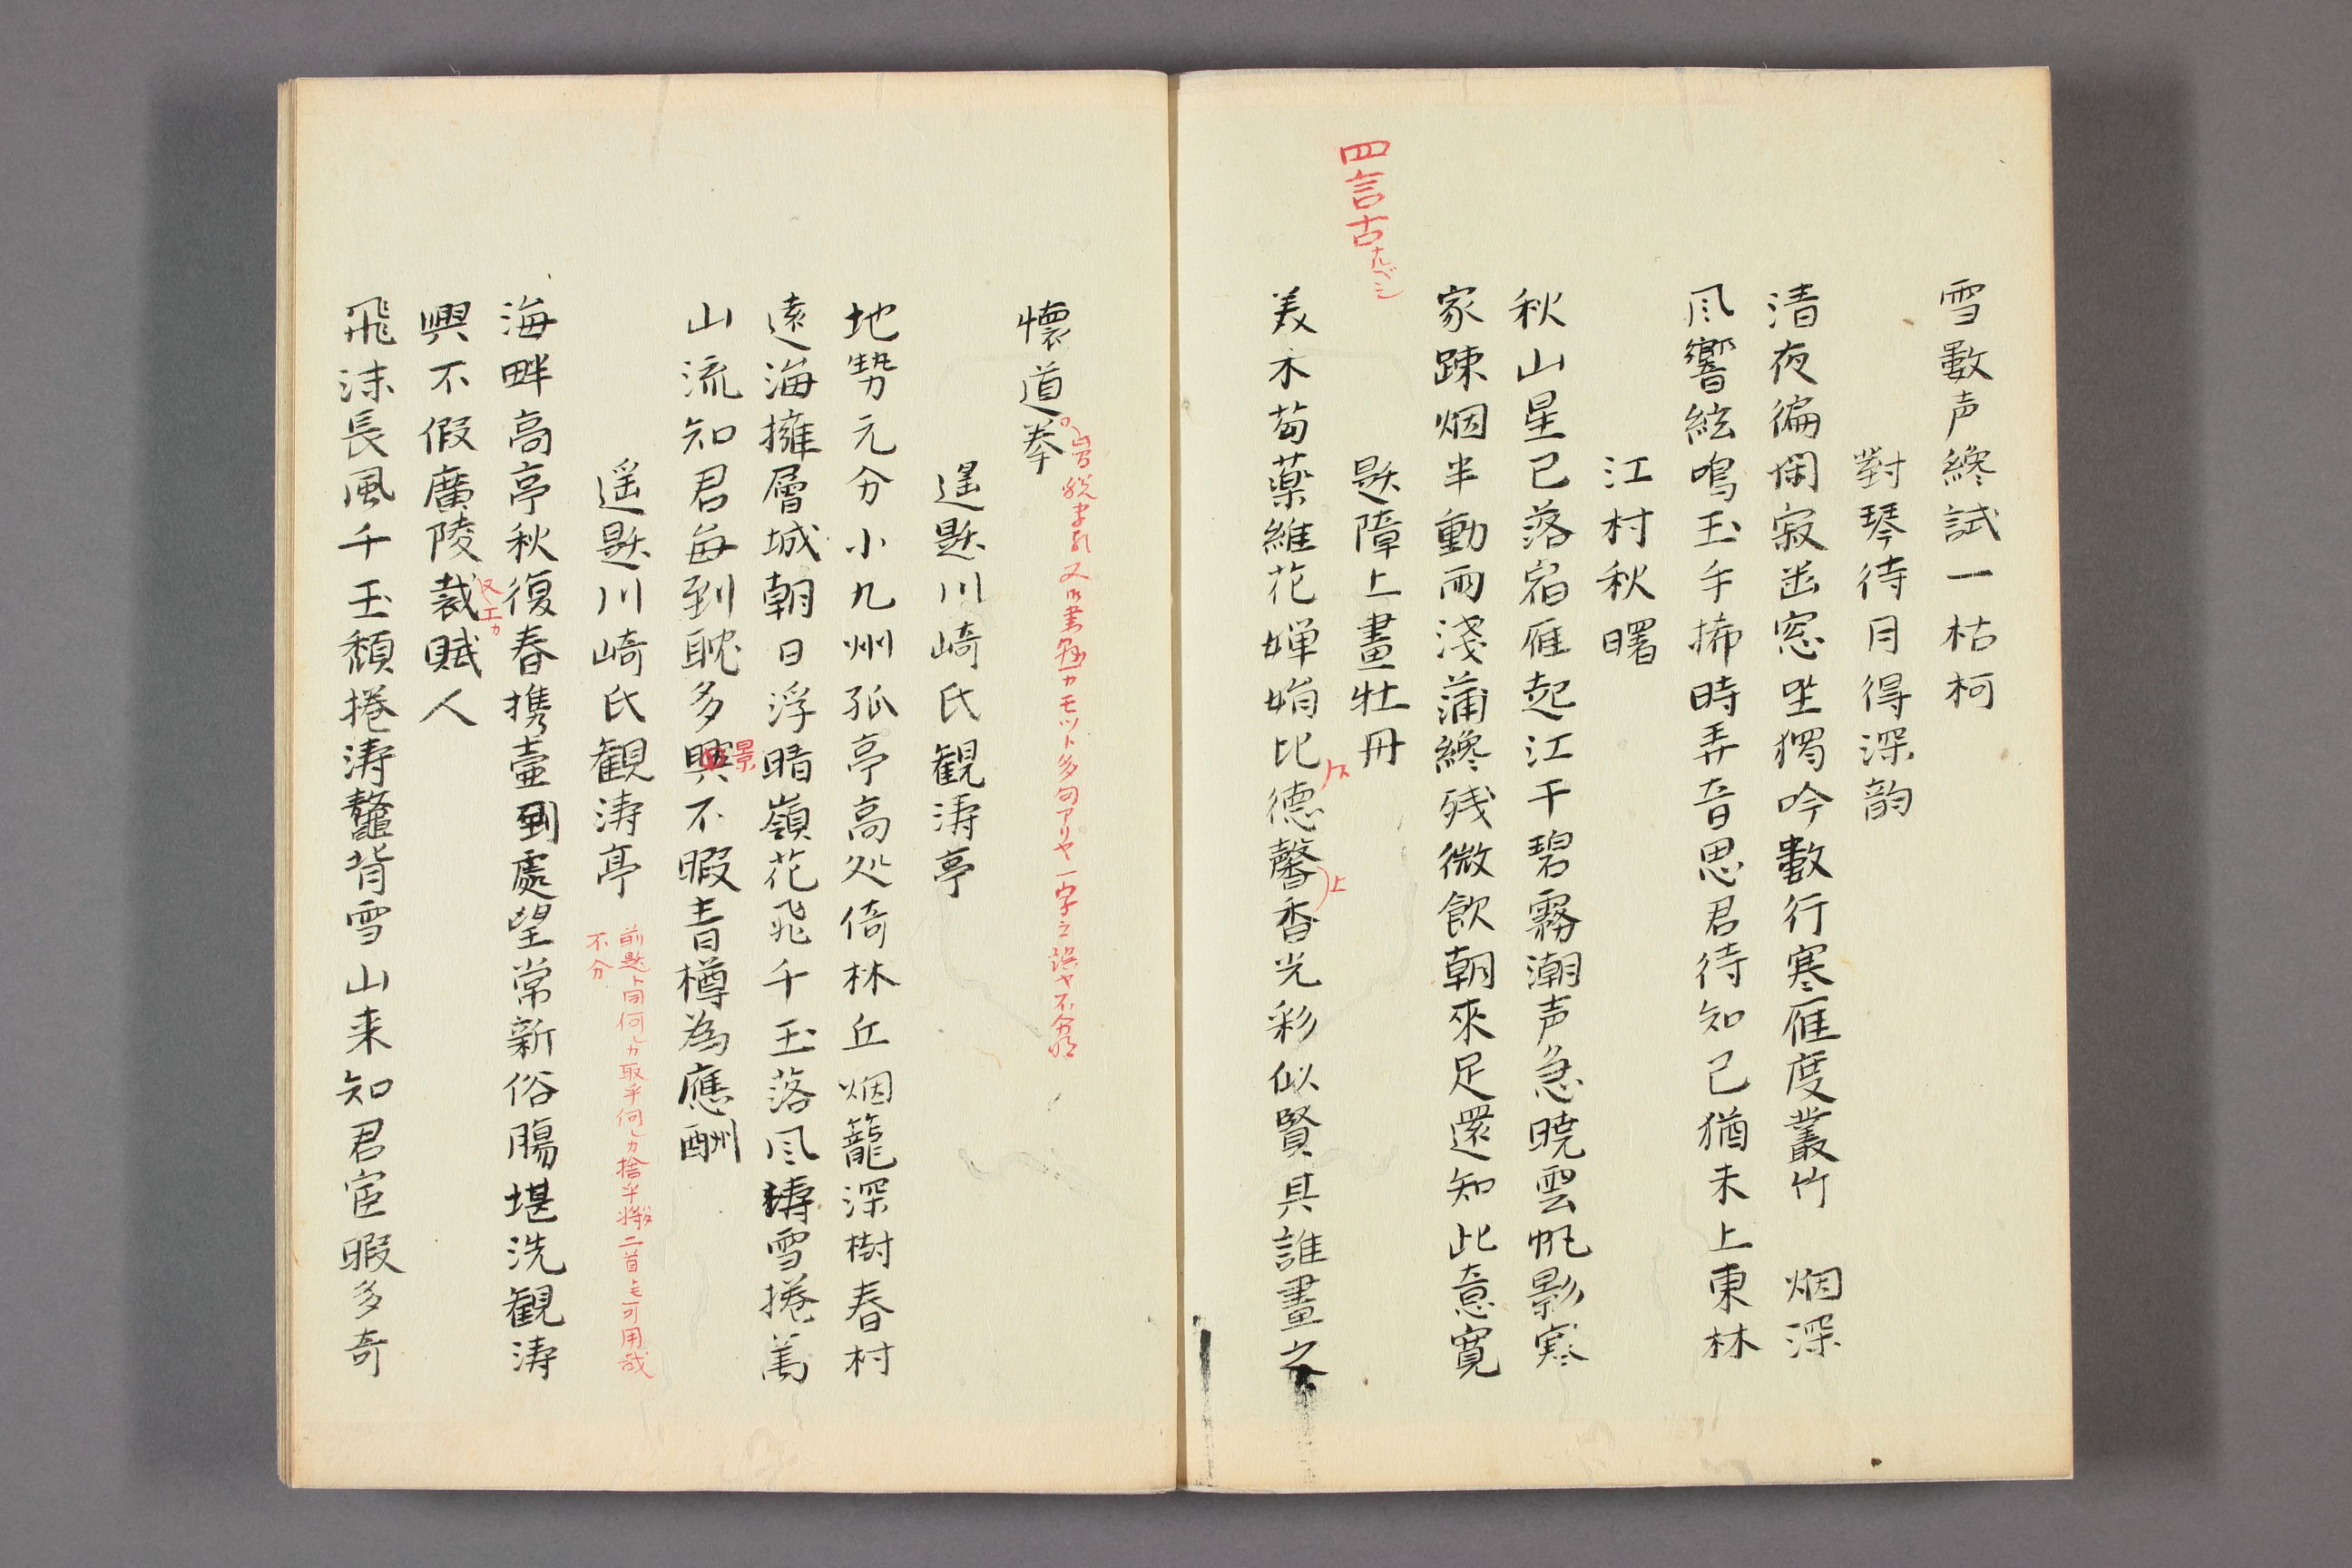 雪數声纔試一枯柯
對琴待月得深韵
清夜徧閑寂幽窓坐獨吟數行寒雁度叢竹 烟深
风響絃鳴玉手揥時弄音思君待知己猶未上東林
江村秋曙
秋山星已落宿雁起江干碧霧潮声急暁雲帆影寒
家踈烟半動雨淺蒲纔残微飲朝來足還知此意寛
四言古ナルベシ
題障上畫牡丹
美木芍薬維花嬋娟比德馨香光彩似賢具誰畫之
上
懷道拳
又 書 カモット多句アリヤ一字之誤ヤ不分明
遥題川崎氏観涛亭
地勢元分小九州孤亭高处倚林丘烟籠深樹春村
遠海擁層城朝日浮晴嶺花飛千玉落风涛雪捲萬
山流知君每到耽多興不暇青樽為應酬
景
遥題川崎氏観涛亭
前題ト同何レカ取乎何レカ捨乎將 二首トモ可用哉
不分
海畔高亭秋復春携壷到處望常新俗腸堪洗観涛
興不假廣陵裁賦人
飛沫長風千玉頽捲涛鼇背雪山来知君宦暇多奇